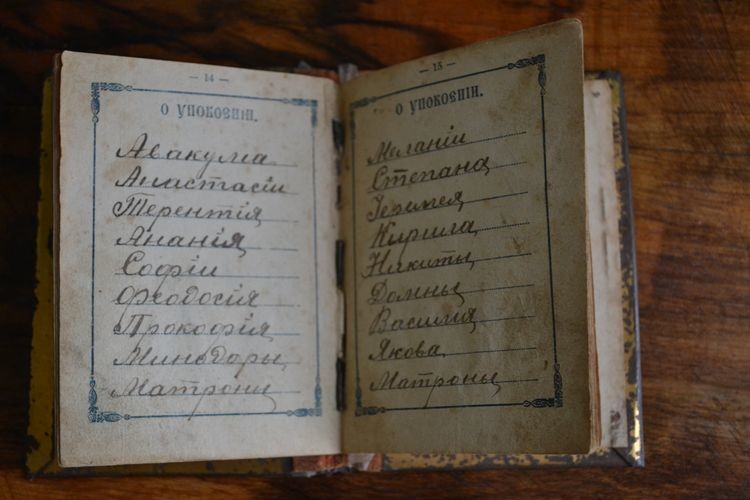 — 14 —
О УПОКОЕНІИ.
Авакума
Анастасіи
Терентія
Ананія
Софіи
Феодосія
Прокофія
Минодоры
Матроны
— 15 —
О УПОКОЕНІИ.
Меланіи
Степана
Іеремея
Кирила
Никиты
Домны
Василія
Якова
Матроны